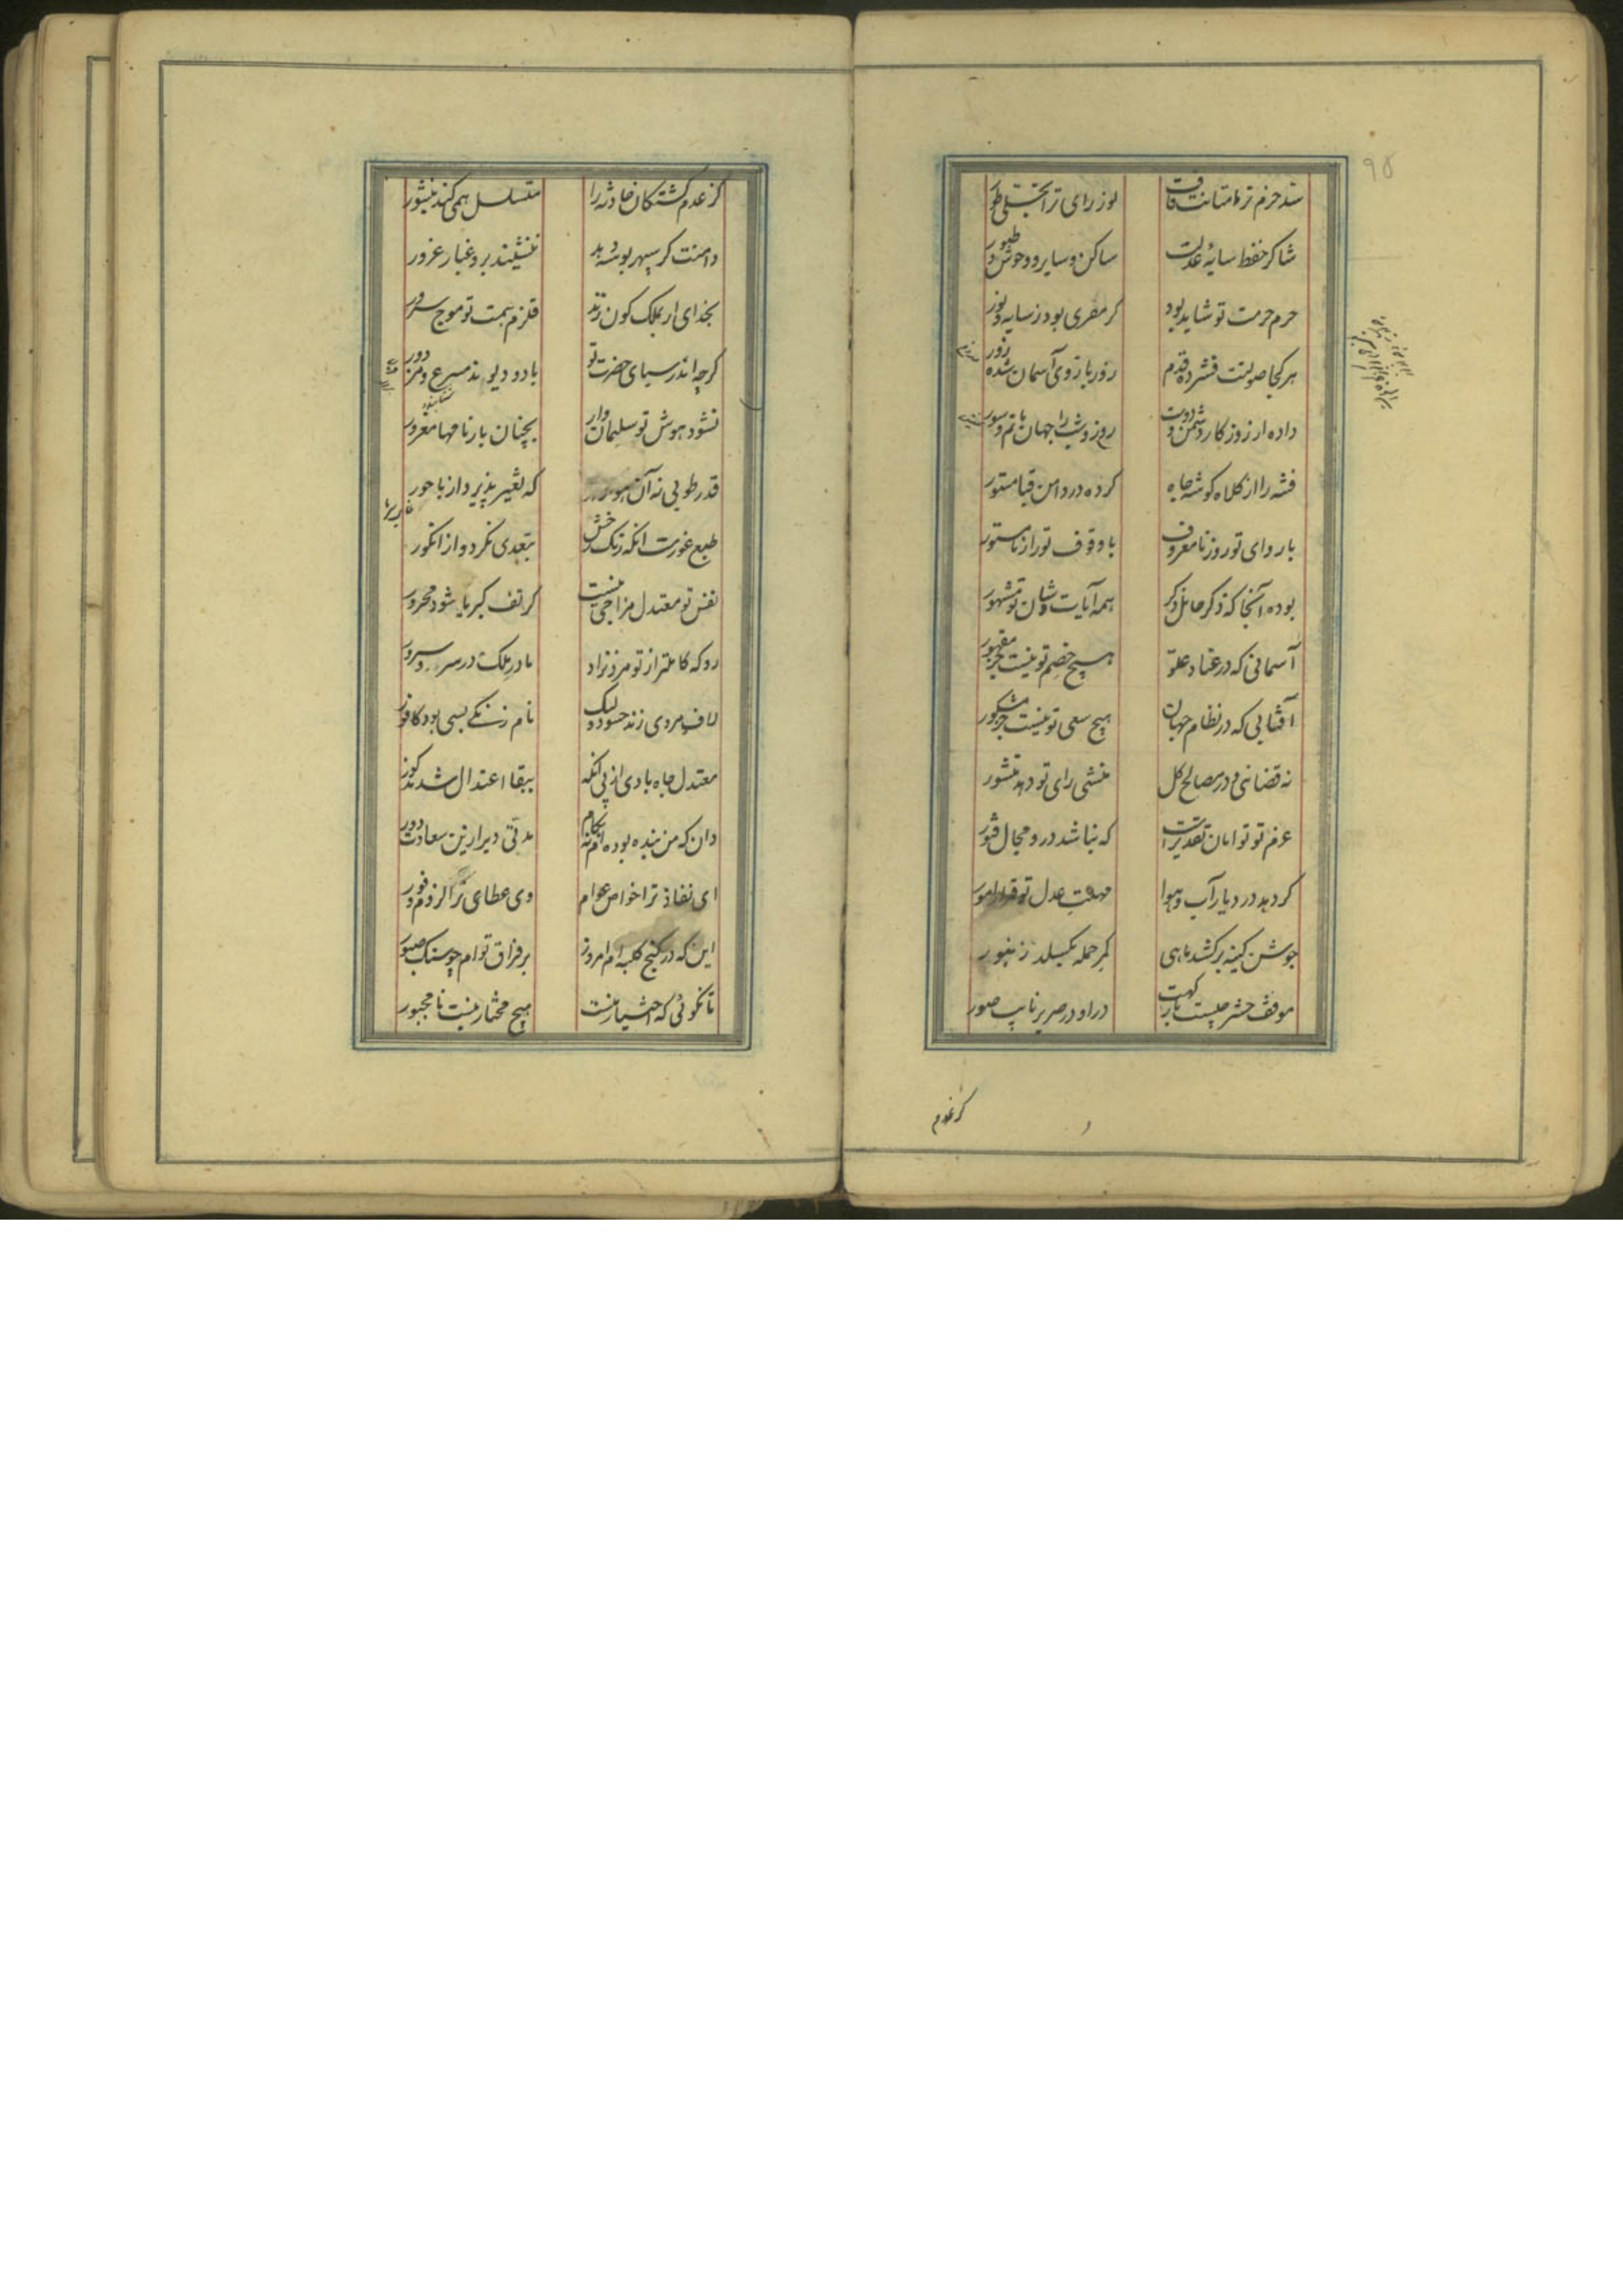 ۹۵
شاکر حفظ سایهٔ عدلت ساکن و سایر و وحوش و طیور
حرم حرمت تو شاید بود کر مفری بود ز سایه و نور
هر کجا صولتت فشرده قدم زور بازوی آسمان شده زور
داده از روزکار دشمن و دوست روز و شب را جهان ماتم و سور
فتنه را از کلاه کوشه جاه کرده در دامن قبا مستور
با ردای تو روز نامعروف با وقوف تو راز نامستور
بوده آنجا که ذکر حامل ذکر همه آیات شان تو مشهور
آسمانی که در عناد و علو هیچ خصم تو نیست جز مقهور
آفتابی که در نظام جهان هیچ سعی تو نیست جز مشکور
نه قضائی و در مصالح کل منشی رای تو دهد منشور
عزم تو توامان تقدیرست که نباشد درو مجال فتور
کر دهد در دیار آب و هوا مهلت عدل تو قرار امور
جوشن کینه برکشد ماهی کمر حمله بکسلد زنبور
موقف حشر چیست بارکهت در او در صریر نایب صور
کز عدم
کز عدم کشتکان حادثه را متسلسل همی کند منشور
دامنت کر سپهر بوسه دهد ننشیند برو غبار غرور
بخدای ار بملک کون زند قلزم همت تو موج سرور
کرچه اندر سبای حضرت تو باد و دیوند مسرع و مزدور
نشود هوش تو سلیمان وار بچنان بارنامها مغرور
قدر طوبی نه آن که تغیر پذیرد از باحور
طبع غورست آنکه رنک رخش بتعدی نکردد از انکور
نفس تو معتدل مزاجی نیست کز تف کبریا شود محرور
رو که کاملتر از تو مرد نزاد مادر ملک در سرور
لاف مردی زند حسود ولیک نام زنکی بسی بود کافور
معتدل جاه بادی از پی آنکه ببقا اعتدال شد مذکور
دان که من بنده بوده‌ام نه بکام مدتی دیر ازین سعادت دور
ای نفاذ ترا خواص عوام وی عطای ترا لزوم وفور
این که در کنج کلبه ام امروز بر فراق توام چو سنک صبور
تا نکوئی که اختیار منست هیچ مختار نیست نامجبور